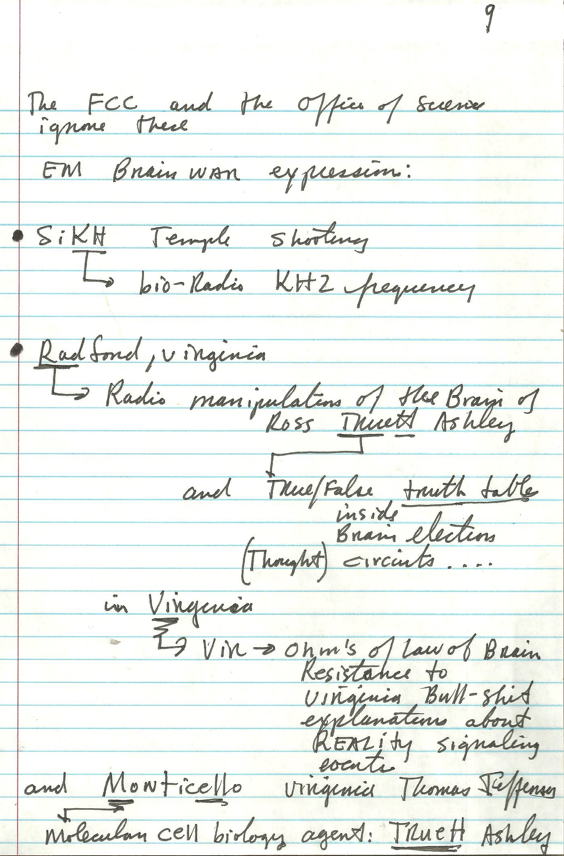 9
The FCC and the Office of Science
ignore these
EM Brain WAR expression:
• SiKH Temple shooting
bio-Radio KHZ frequency
• Radford, Virginia
Radio manipulation of the Brain of
Ross TRuett Ashley
and TRue/False truth table
inside
Brain election
(Thought) circuits ....
in Virginia
ViR → Ohm's of Law of Brain
Resistance to
Virginia Bull-shit
explanations about
REALity signaling
events
and Monticello Virginia Thomas Jefferson
Molecular cell biology agent: TRuett Ashley